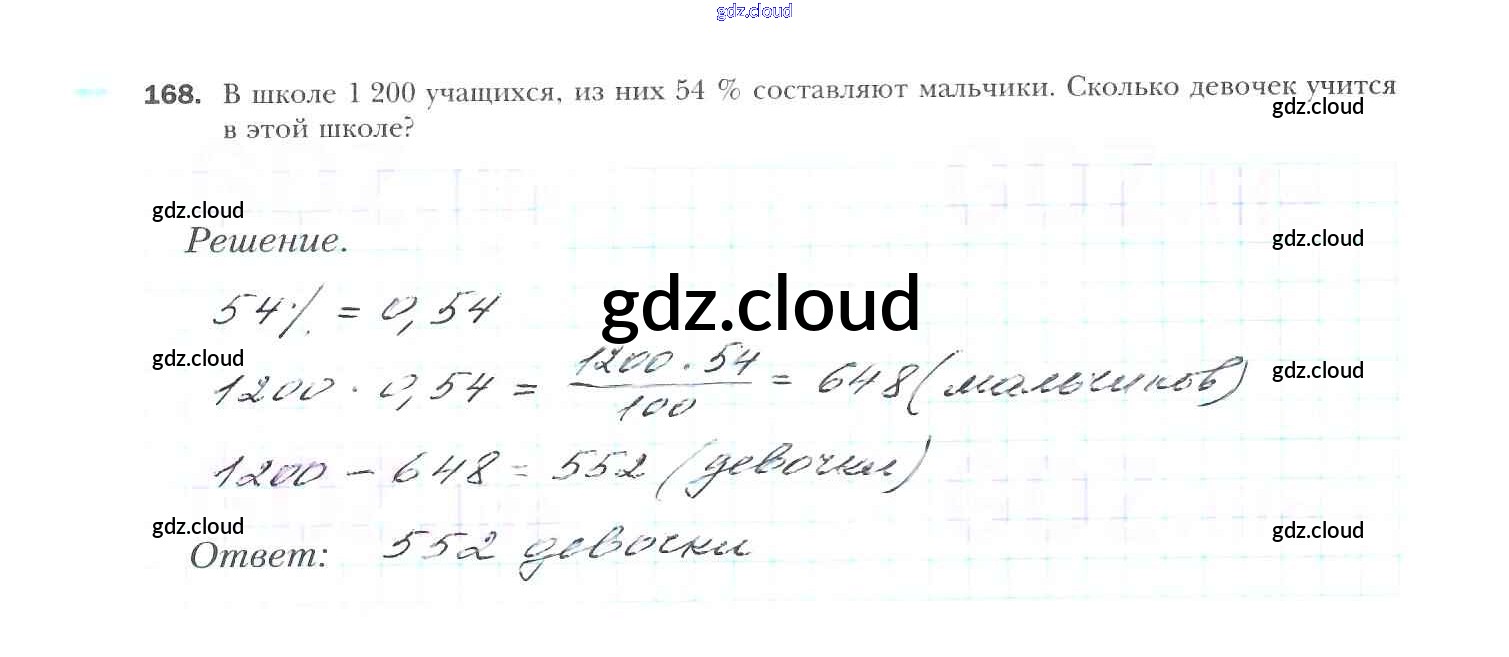 gdz.cloud
168. В школе 1 200 учащихся, из них 54 % составляют мальчики. Сколько девочек учится
gdz.cloud
в этой школе?
gdz.cloud
Решение.
gdz.cloud
54% = 0,54
gdz.cloud
gdz.cloud
1200 · 0,54 = 1200 · 54 / 100 = 648 (мальчиков)
gdz.cloud
1200 - 648 = 552 (девочки)
gdz.cloud
gdz.cloud
Ответ: 552 девочки